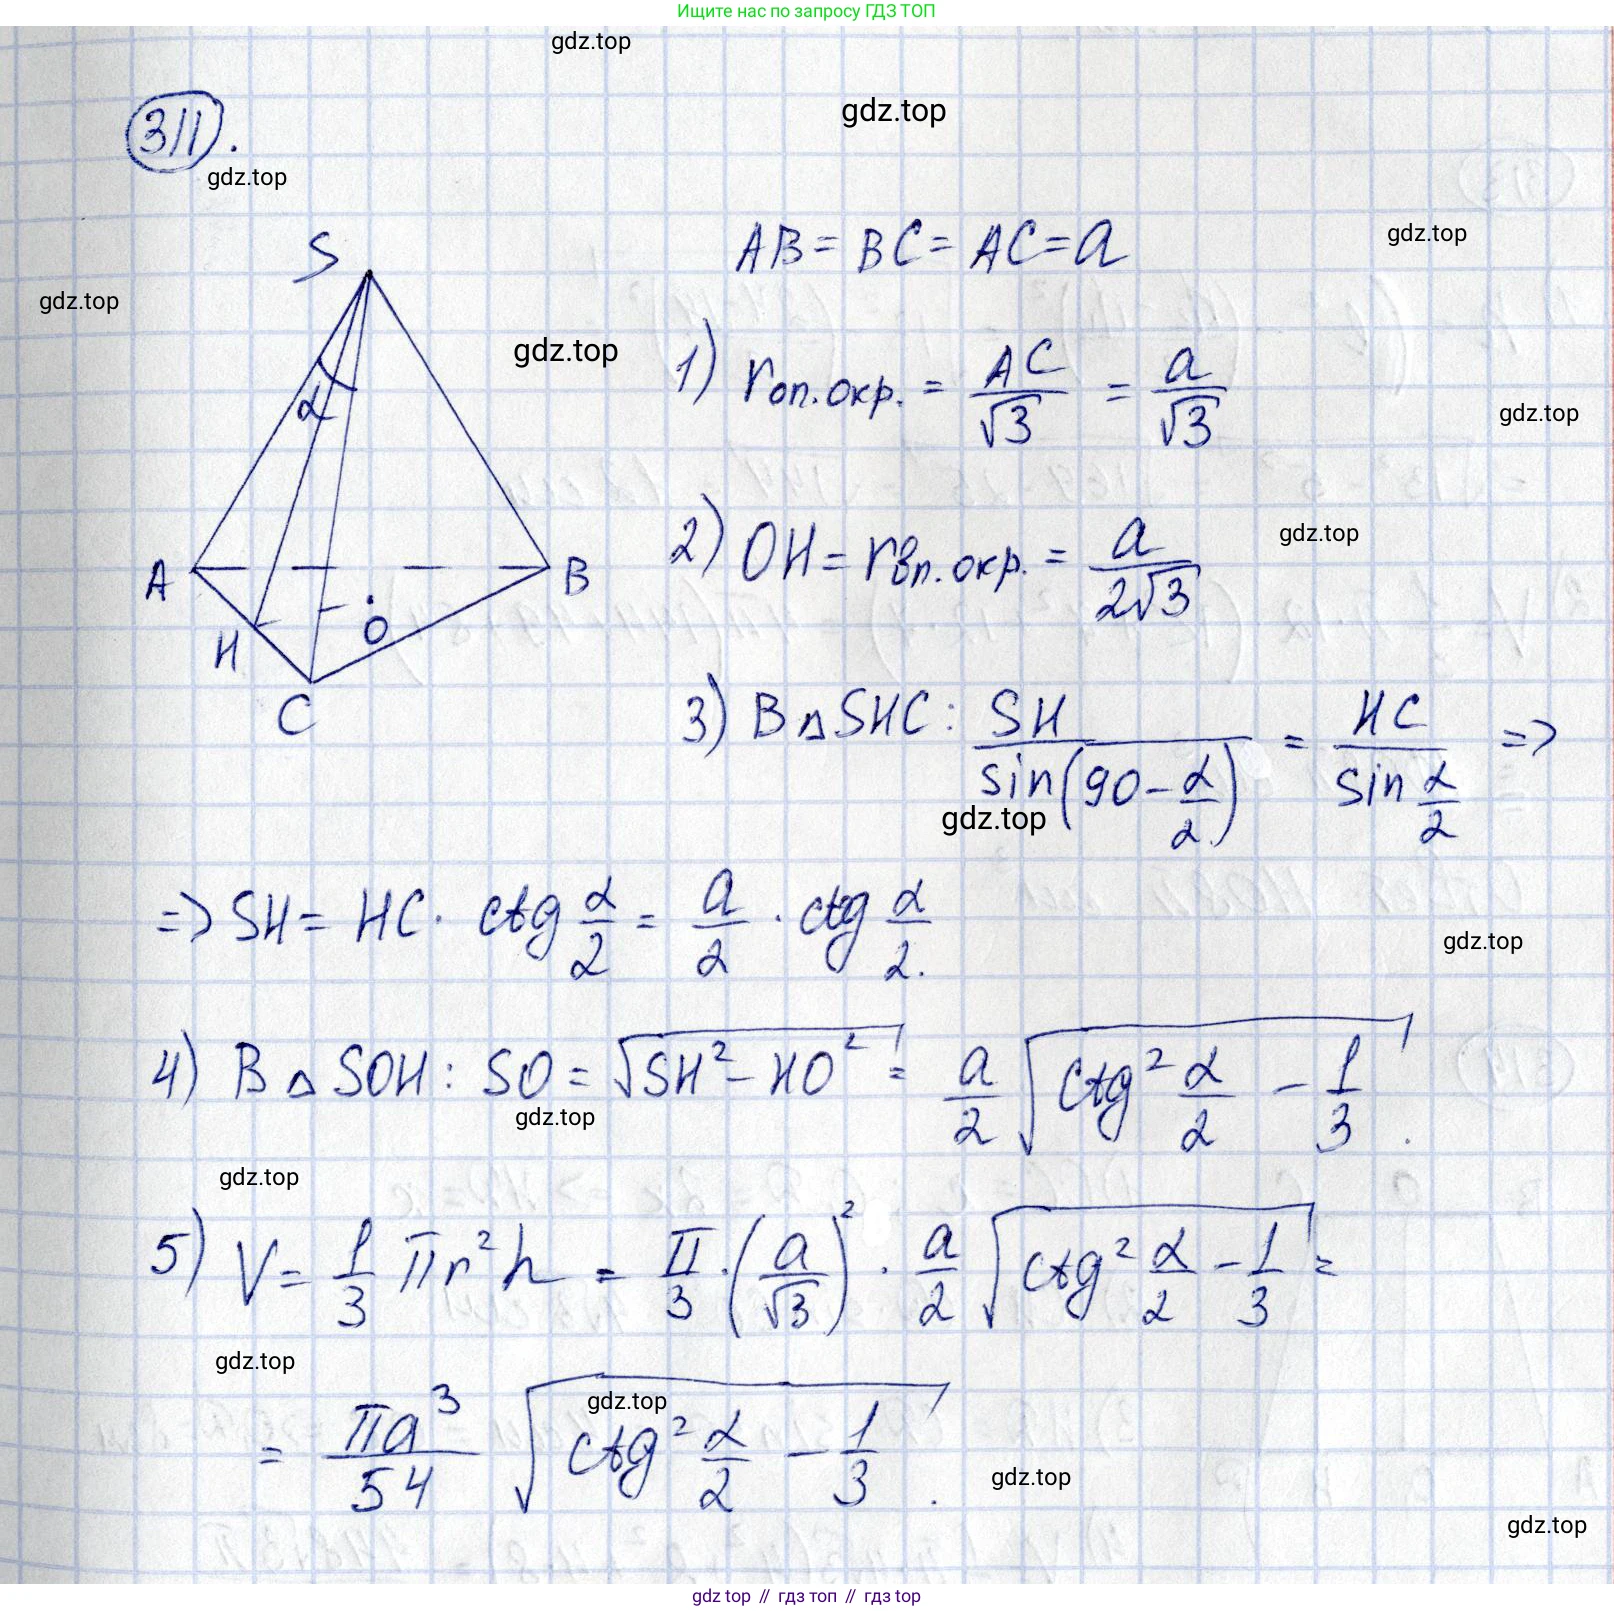 Ищите нас по запросу ГДЗ ТОП
gdz.top
gdz.top
311.
gdz.top
S
AB = BC = AC = a
gdz.top
gdz.top
gdz.top
1) rоп.окр. = AC/√3 = a/√3
α
gdz.top
2) OH = rвп.окр. = a/(2√3)
gdz.top
A
B
O
H
C
3) В △ SHC: SH/sin(90 - α/2) = HC/sin α/2 =>
gdz.top
=> SH = HC · ctg α/2 = a/2 · ctg α/2.
gdz.top
4) В △ SOH: SO = √(SH² - HO²) = a/2 √(ctg² α/2 - 1/3).
gdz.top
gdz.top
5) V = 1/3 πr²h = π/3 · (a/√3)² · a/2 √(ctg² α/2 - 1/3) =
gdz.top
gdz.top
= πa³/54 √(ctg² α/2 - 1/3).
gdz.top
gdz.top
gdz top // гдз топ // gdz.top